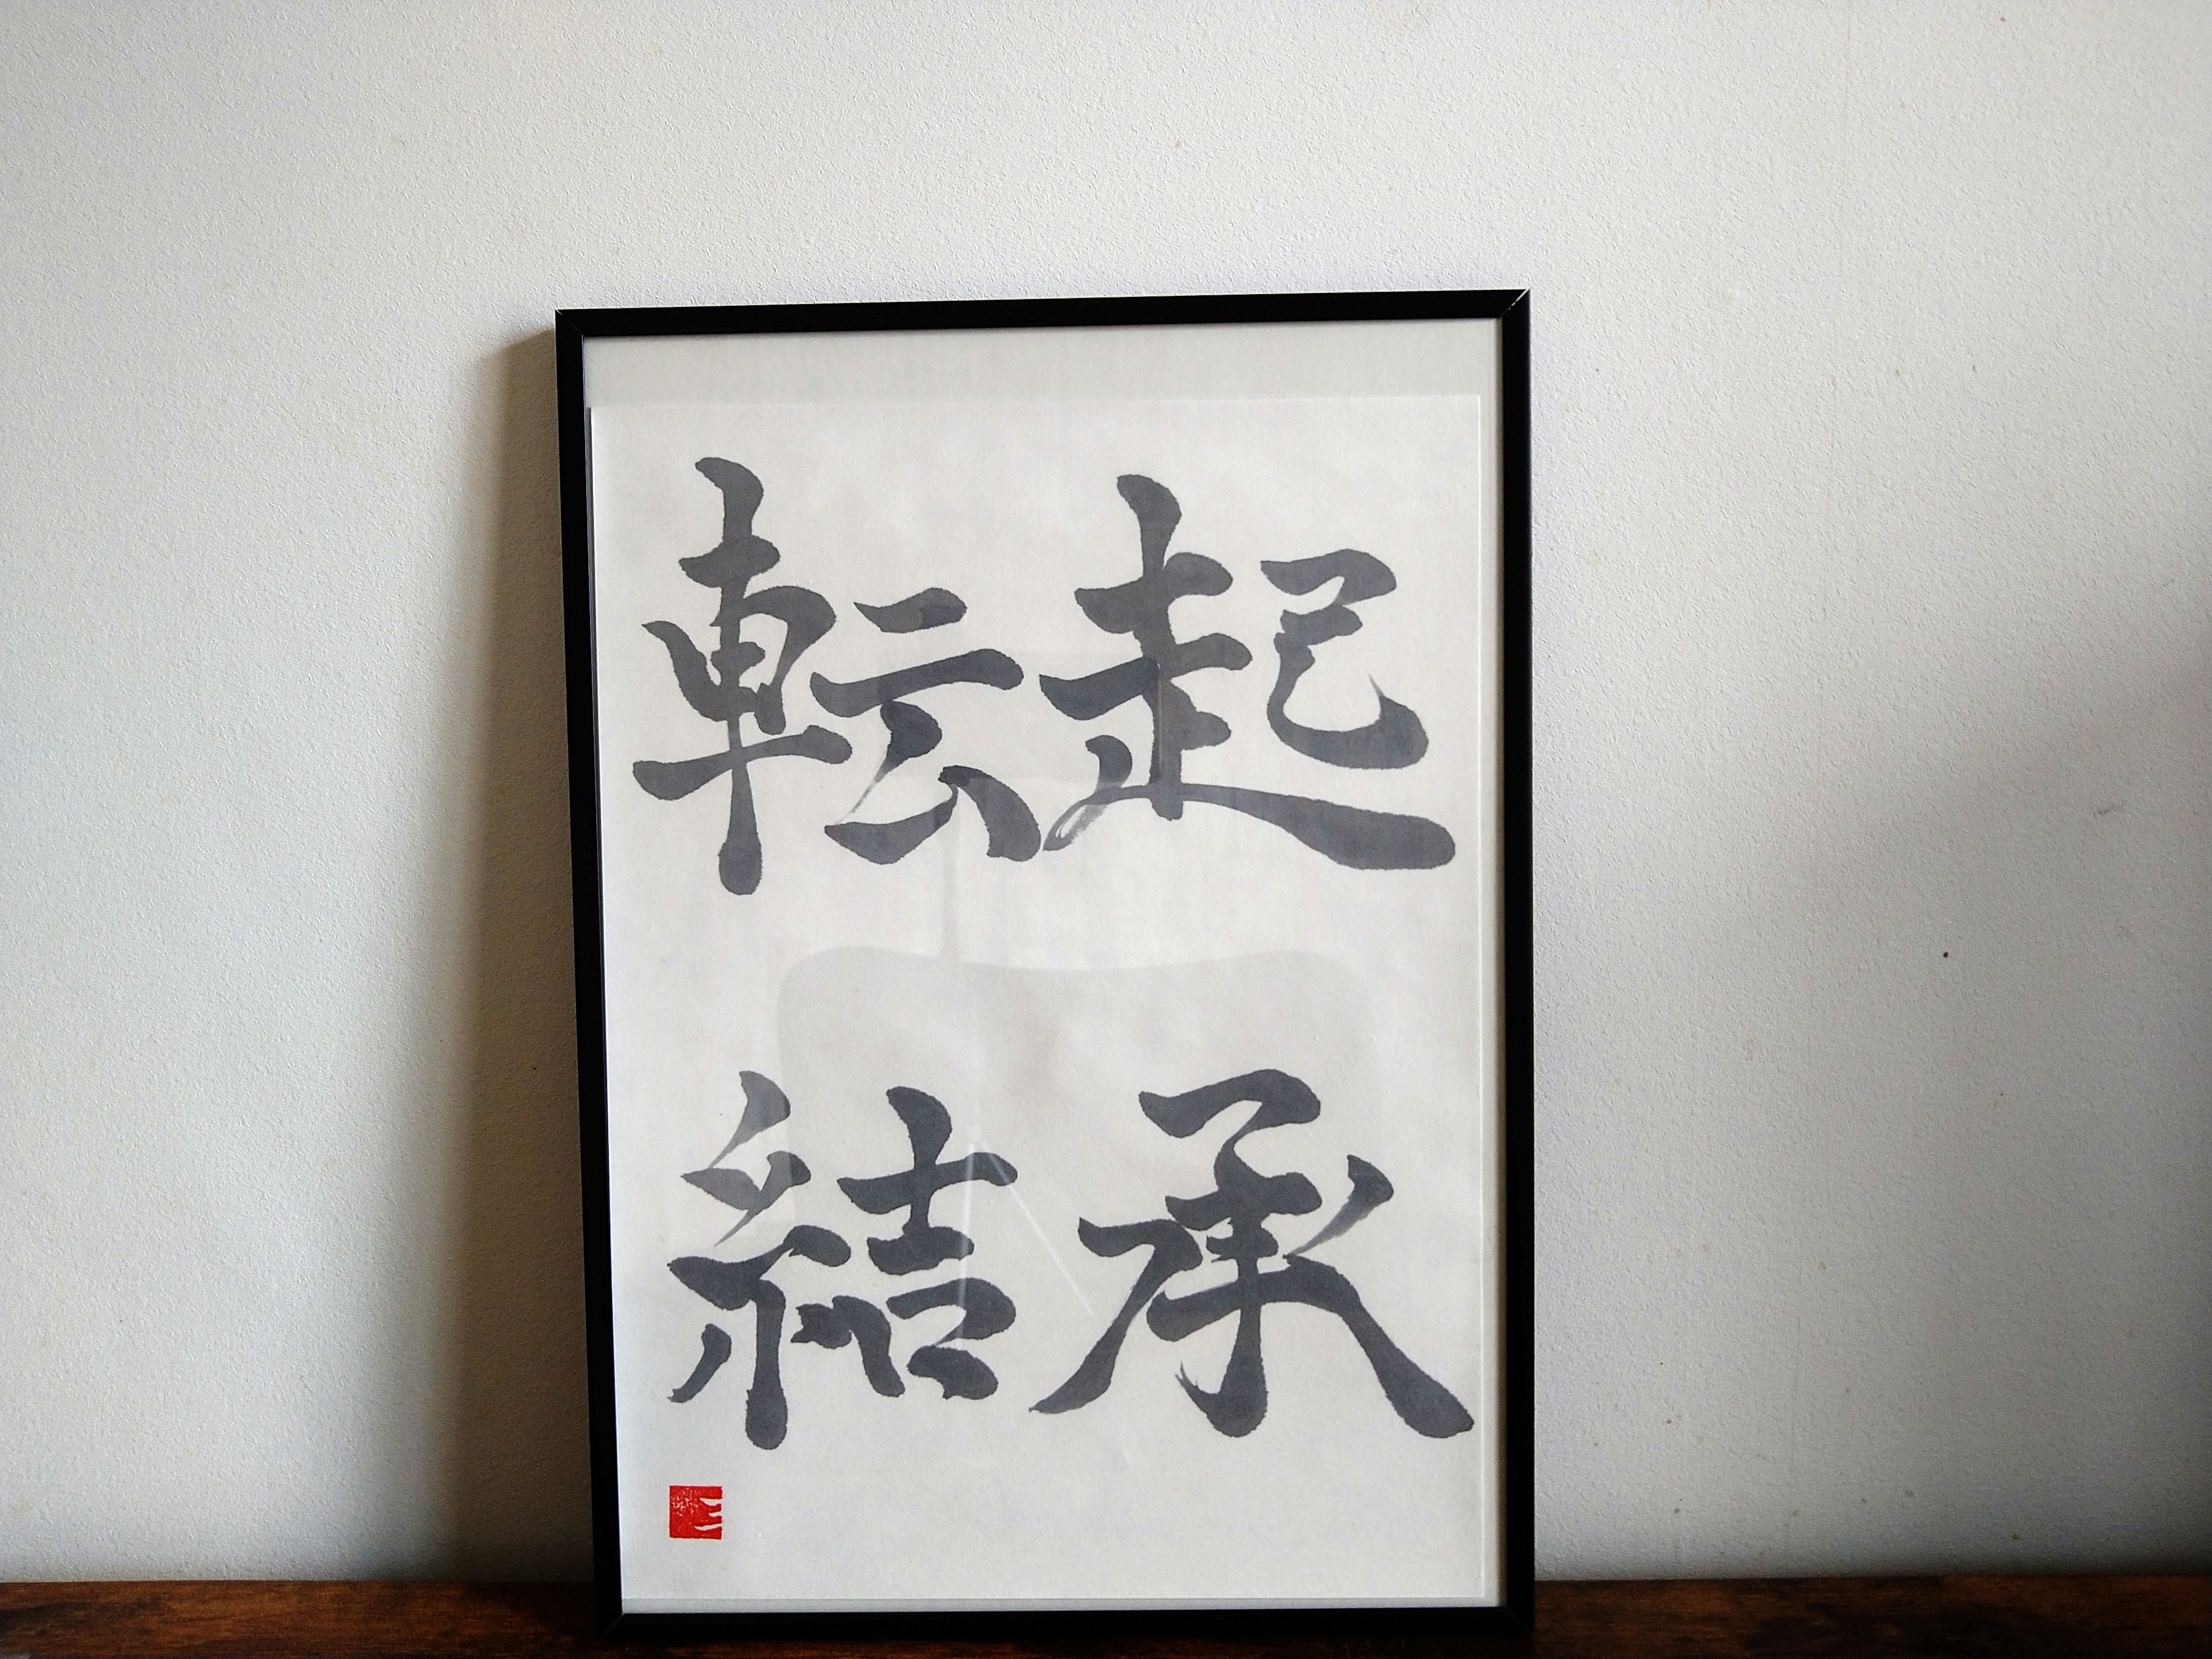 起承
転結